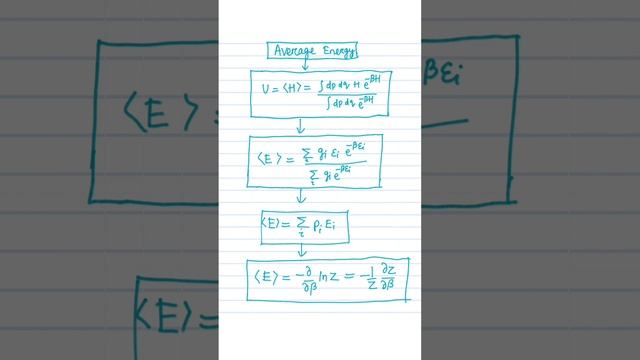 Average Energy
U = ⟨H⟩ = ∫dp dq H e^{-βH} / ∫dp dq e^{-βH}
⟨E⟩ = Σ_i g_i ε_i e^{-βε_i} / Σ_i g_i e^{-βε_i}
⟨E⟩ = Σ_i P_i E_i
⟨E⟩ = -∂/∂β ln Z = -1/Z ∂Z/∂β
⟨E⟩
βε_i
⟨E⟩ =